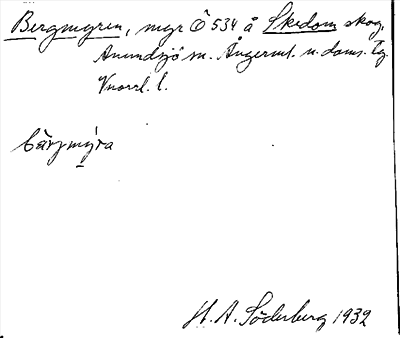 Bergmyren, myr Ö 534 å Skedom skog,
Anundsjö sn. Ångerml. n. doms. tg.
Vnorrl. l.
bärjmy̱ra
H. A. Söderberg 1932